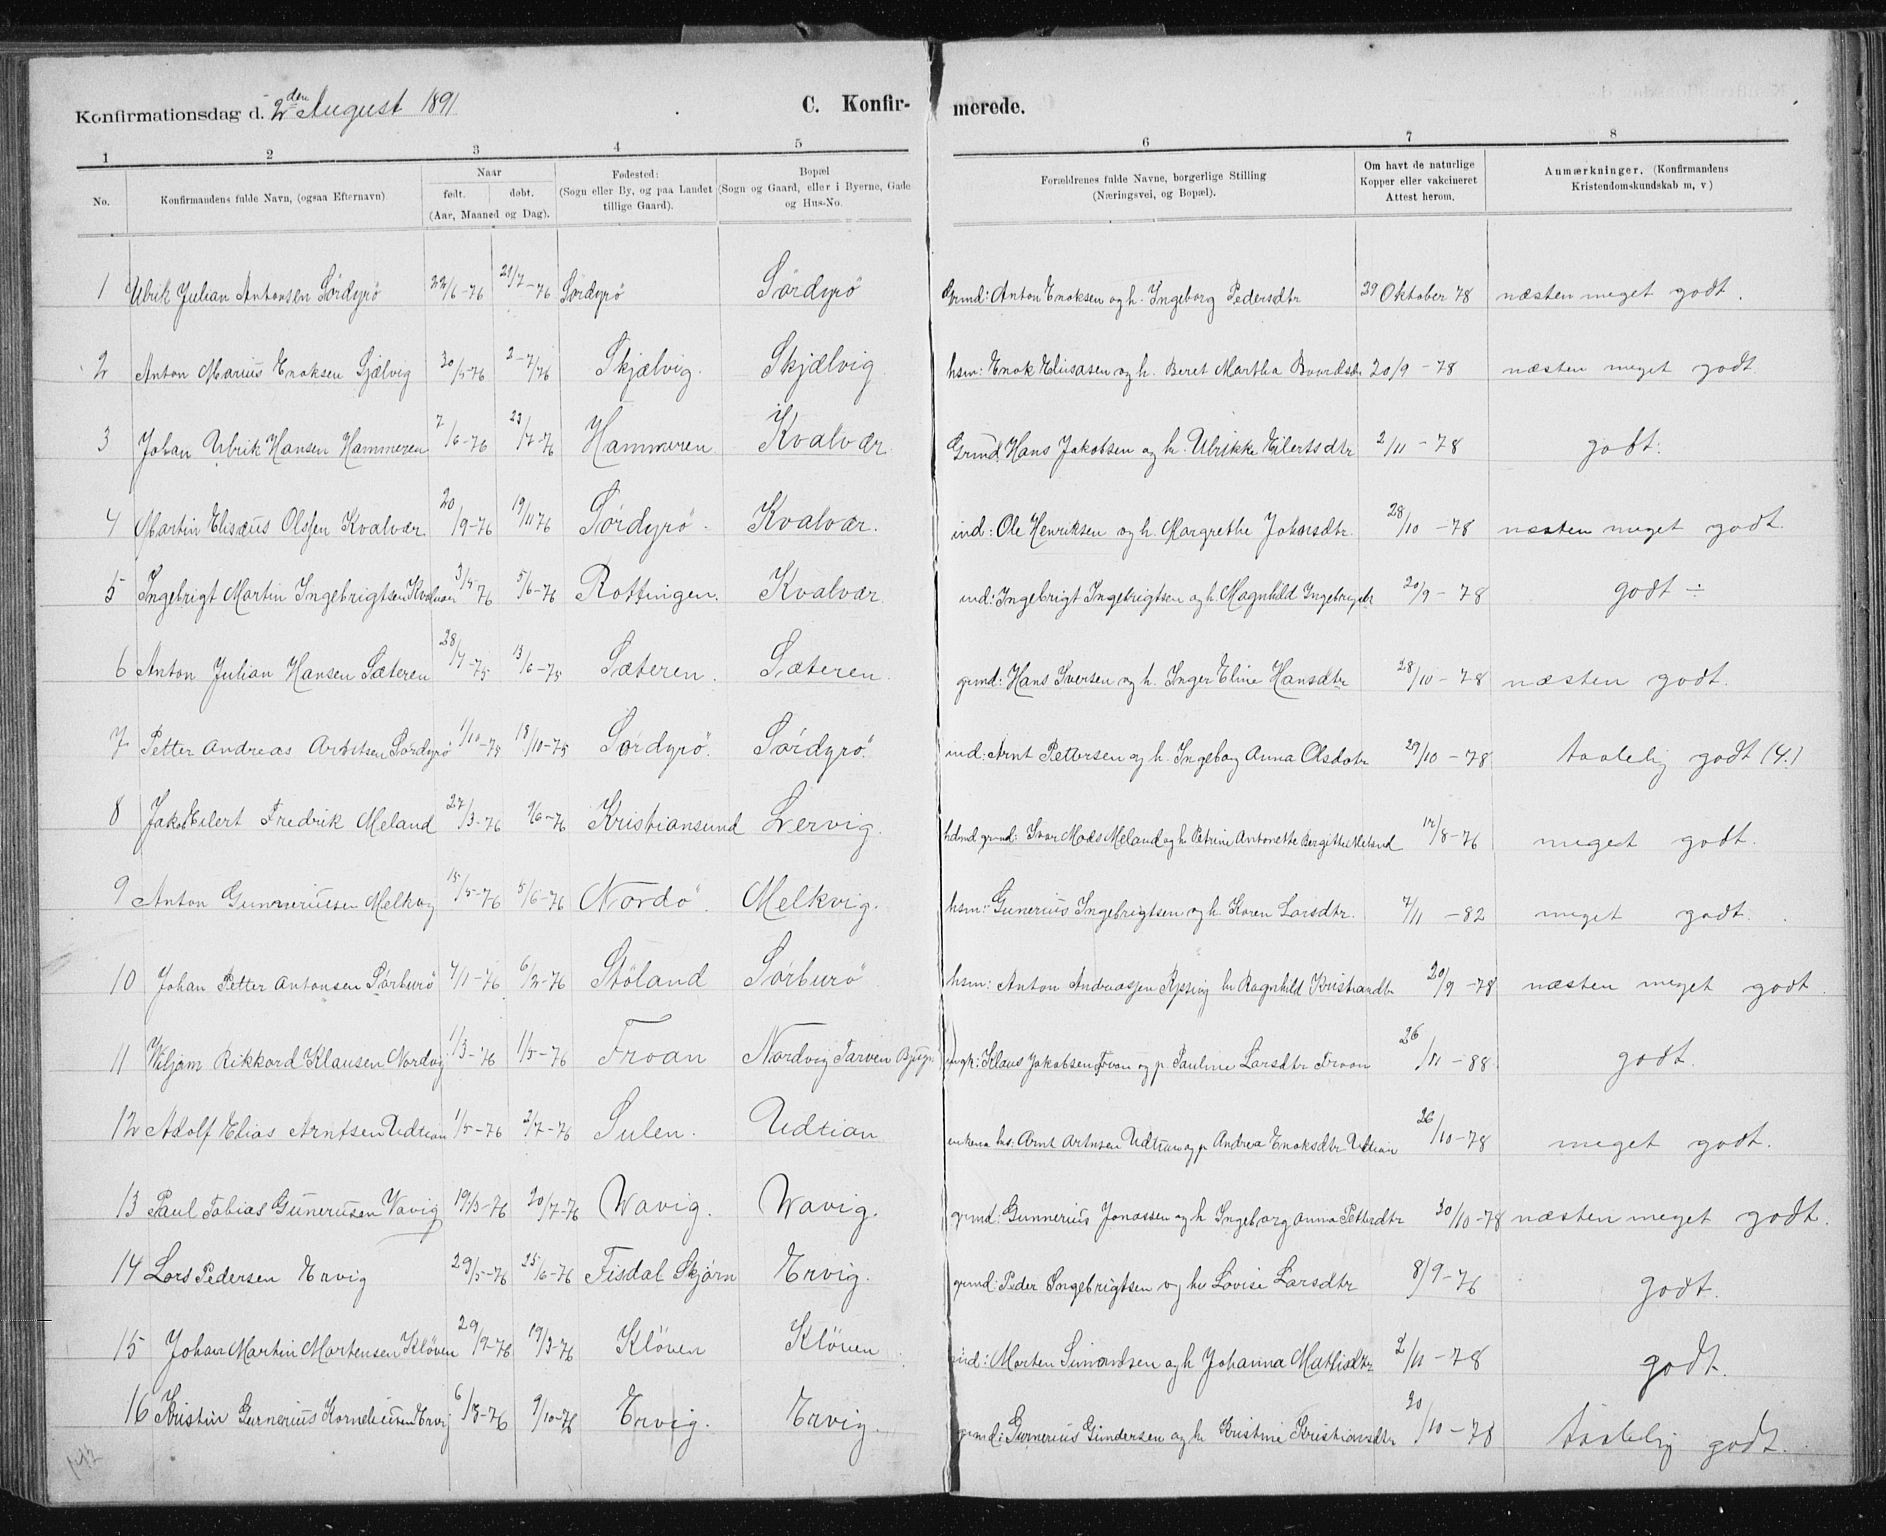 Konfirmationsdag d. 2den August 1891
C. Konfirmerede.
1 2 3 4 5 6 7 8
No. Konfirmandens fulde Navn, (ogsaa Efternavn) Naar født. døbt. (Aar, Maaned og Dag). Fødested: (Sogn eller By, og paa Landet tillige Gaard). Bopæl (Sogn og Gaard, eller i Byerne, Gade og Hus-No. Forældrenes fulde Navne, borgerlige Stilling (Næringsvei, og Bopæl). Om havt de naturlige Kopper eller vakcineret Attest herom. Anmærkninger. (Konfirmandens Kristendomskundskab m, v)
1 Ulrik Julian Antonsen Sørdyrö 22/6-76 21/7-76 Sørdyrö Sørdyrö Grmd: Anton Enoksen og h. Ingeborg Pedersdtr 29 Oktober 78 næsten meget godt.
2 Anton Marius Enoksen Sjælvig 30/5-76 2-7/76 Skjælvig. Skjælvig hsm: Enok Eliasasen og h. Beret Martha 20/9-78 næsten meget godt
3 Johan Ulrik Hansen Hammeren 7/6-76 23/7-76 Hammeren Kvalvær Grmd. Hans Jakobsen og h. Ulrikke Eilertsdtr 2/11-78 godt.
4 Martin Elisæus Olsen Kvalvær 20/9-76 19/11 76 Sørdyrö Kvalvær. ind: Ole Henriksen og h. Margrethe Johnsdtr. 28/10-78 næsten meget godt.
5 Ingebrigt Martin Ingebrigtsen Kvalvær 3/5 76 5/6-76 Rottingen. Kvalvær ind: Ingebrigt Ingebrigtsen og h. Magnhild 20/9-78 godt ÷
6 Anton Julian Hansen Sæteren 28/4-75 13/6-75 Sæteren. Sæteren. grmd: Hans Iversen og h. Inger Eline Hansdtr 28/10-78 næsten godt.
7 Petter Andreas Arntsen Sørdyrö 1/10-75 18/10-75 Sørdyrö. Sørdyrö. ind: Arnt Pettersen og h. Ingebog Anna Olsdatr 29/10-78 taalelig godt (4.)
8 Jakob Eilert Fredrik Meland 27/3-76 /6-76 Kristiansund Lervig. hdmd grmd: Ivar Mads Meland og h. Petrine Antonette Bergitte Meland 12/8-76 meget godt.
9 Anton Gunneriusen Melkvig 15/5-76 5/6-76 Nordö. Melkvig. hsm: Gunerius Ingebrigtsen og h. Karen Larsdtr. 7/11-82 meget godt.
10 Johan Petter Antonsen Sørburö 4/1-76 6/2-76 Stöland Sørburö hsm: Anton Andreassen hr Ragnhild 20/9-78 næsten meget godt.
11 Wiljam Rikkard Klausen Nordvig 1/3-76 1/5-76 Froan Nordvig Tarven Bjugn ungk: Klaus Jakobsen Froan og p. Pauline Larsdtr Froan 26/11-88. godt.
12 Adolf Elias Arntsen Udtian 1/5-76 2/7-76 Sulen. Udtian Arnt Arntsen Udtian og p Andrea Enoksdtr Udtian 26/10-78 meget godt.
13 Paul Tobias Gunerusen Vavig 19/3-76 20/7-76 Wavig. Wavig. grmd: Gunnerius Jonassen og h Ingeborg Anna Pettersdtr 20/10-78 næsten meget godt.
14 Lars Pedersen Ervig 29/5-76 25/6-76 Fisdal Skjørn Ervig. grmd: Peder Ingebrigtsen og hu Lovise Larsdtr 8/9-76 godt.
15 Johan Martin Martensen Klöven 29/2-76 19/3-76 Klöven Klöven ind: Morten Simondsen og h Johanna 2/11-78 godt.
16 Kristin Gunnerius Korneliusen Ervig 6/3-76 9/10-76 Ervig. Ervig. grmd: Gunnerius Gundersen og hr Kristine Kristiansdtr 20/10-78 taalelig godt.